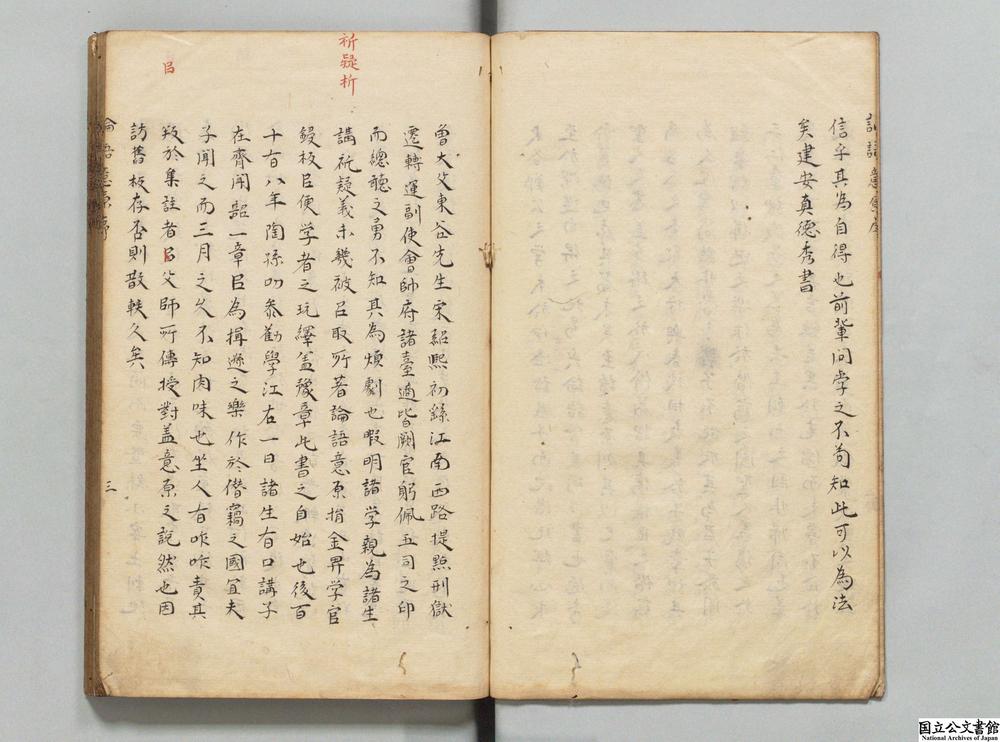 信乎其為自得也前輩同学之不苟知此可以為法
矣建安真德秀書
祈疑析
曽大父東谷先生宋紹熈初繇江南西路提㸃刑獄
遷轉運副使會帥府諸臺適皆闕官躬佩五司之印
而總聴之勇不知其為煩劇也暇明諸学親為諸生
講祈疑義未幾被召取所著論語意原捐金畀学官
鋟板𠰥便学者之玩繹盖豫章此書之自始也後百
十有八年陶孫叨叅勸學江右一日諸生有口講子
在齊聞韶一章𠰥為揖遜之樂作於僣竊之國冝夫
子聞之而三月之久不知肉味也坐人有咋咋責其
㪅於集註者𠰥父師所傳授對盖意原之說然也因
訪舊板存否則散軼久矣
論語意原序
三
国立公文書館
National Archives of Japan